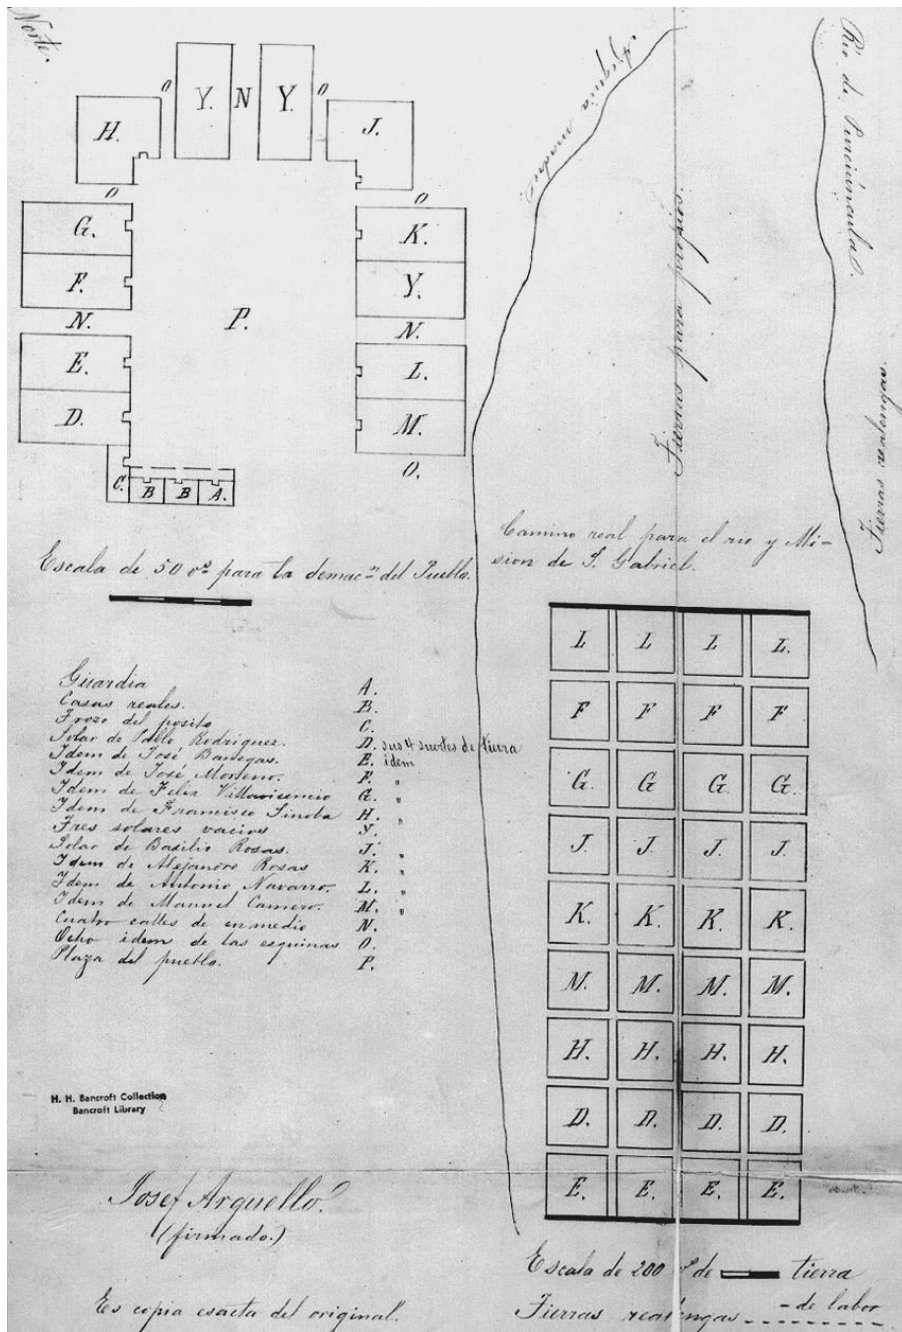 Norte.
Y. N Y.
O O
H. J.
O O
G. K.
F. Y.
P.
N. N.
E. L.
D. M.
O.
C. B B A.
Rio de
Tierras para propios.
Tierras realengas.
Camino real para el rio y Mi-
sion de S. Gabriel.
Escala de 50 vs para la demacn del Pueblo.
Guardia A.
Casas reales. B.
Trozo del posito C.
Solar de Pablo Rodriguez. D. sus 4 suertes de tierra
Idem de José Banegas. E. idem
Idem de José Moreno. F. "
Idem de Felix Villavicencio G. "
Idem de Francisco Sinoba H. "
Tres solares vacios Y.
Solar de Basilio Rosas. J. "
Idem de Alejandro Rosas K. "
Idem de Antonio Navarro. L. "
Idem de Manuel Camero. M. "
Cuatro calles de enmedio N.
Ocho idem de las esquinas O.
Plaza del pueblo. P.
L L L L.
F F F F
G. G G. G.
J. J. J. J.
K. K. K. K.
M. M. M. M.
H. H. H. H.
D. D. D. D.
E. E. E. E.
H. H. Bancroft Collection
Bancroft Library
Josef Arguello.
(firmado.)
Es copia esacta del original.
Escala de 200 vs de tierra
de labor
Tierras realengas